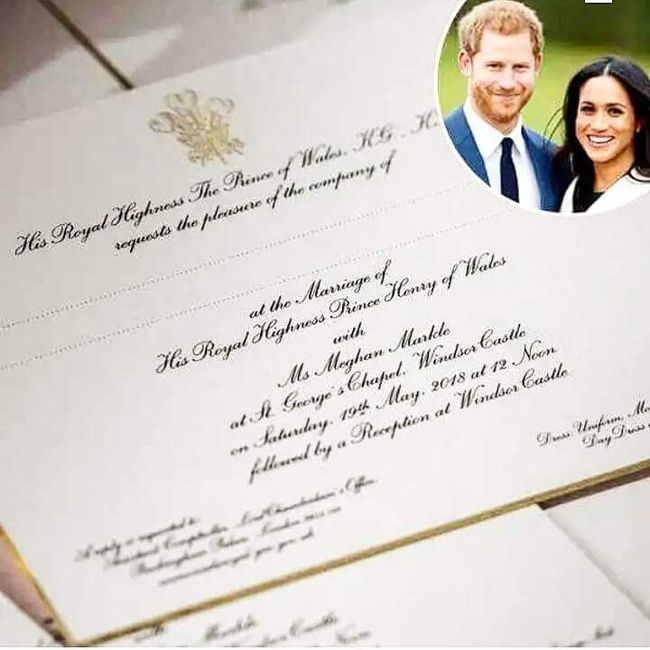 His Royal Highness The Prince of Wales. K.G. K
requests the pleasure of the company of
at the Marriage of
His Royal Highness Prince Henry of Wales
with
Ms Meghan Markle
at St. George's Chapel, Windsor Castle
on Saturday, 19th May, 2018 at 12 Noon
followed by a Reception at Windsor Castle
Dress: Uniform, Mo
Day Dress
A reply is requested to:
Lord Chamberlain's Office,
Buckingham Palace, London
Markle
Windsor Castle
Noon